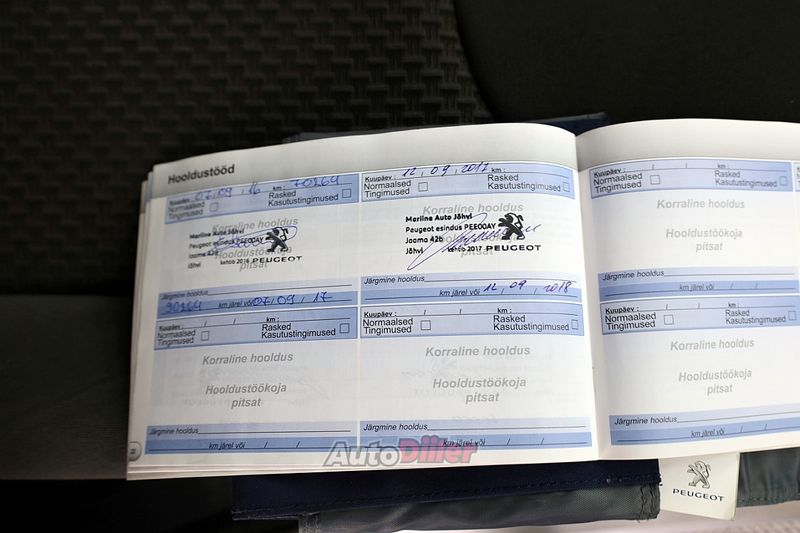 Hooldustööd
Kuupäev: 07, 09, 16 km: 70269
Normaalsed Tingimused
Rasked Kasutustingimused
Korraline hooldus
Mariine Auto Jõhvi
Peugeot esindus PEE00AY
Jaama 42b
Jõhvi
kehtib 2016 PEUGEOT
pitsat
Järgmine hooldus
90269 km järel või 07, 09, 17
Kuupäev: 12, 09, 2017 km:
Normaalsed Tingimused
Rasked Kasutustingimused
Korraline hooldus
Mariine Auto Jõhvi
Peugeot esindus PEE00AY
Jaama 42b
Jõhvi
kehtib 2017 PEUGEOT
Järgmine hooldus
km järel või 12, 09, 2018
Kuupäev: / / km:
Normaalsed Tingimused
Rasked Kasutustingimused
Korraline hooldus
Hooldustöökoja
pitsat
Kuupäev: / / km:
Normaalsed Tingimused
Rasked Kasutustingimused
Korraline hooldus
Hooldustöökoja
pitsat
Järgmine hooldus
km järel või / /
Kuupäev: / / km:
Normaalsed Tingimused
Rasked Kasutustingimused
Korraline hooldus
Hooldustöökoja
pitsat
Järgmine hooldus
km järel või / /
Kuupäev: / / km:
Normaalsed Tingimused
Rasked Kasutustingimused
Korraline hooldus
Hooldustöökoja
pitsat
Järgmine hooldus
km järel või / /
AutoDiiler
PEUGEOT